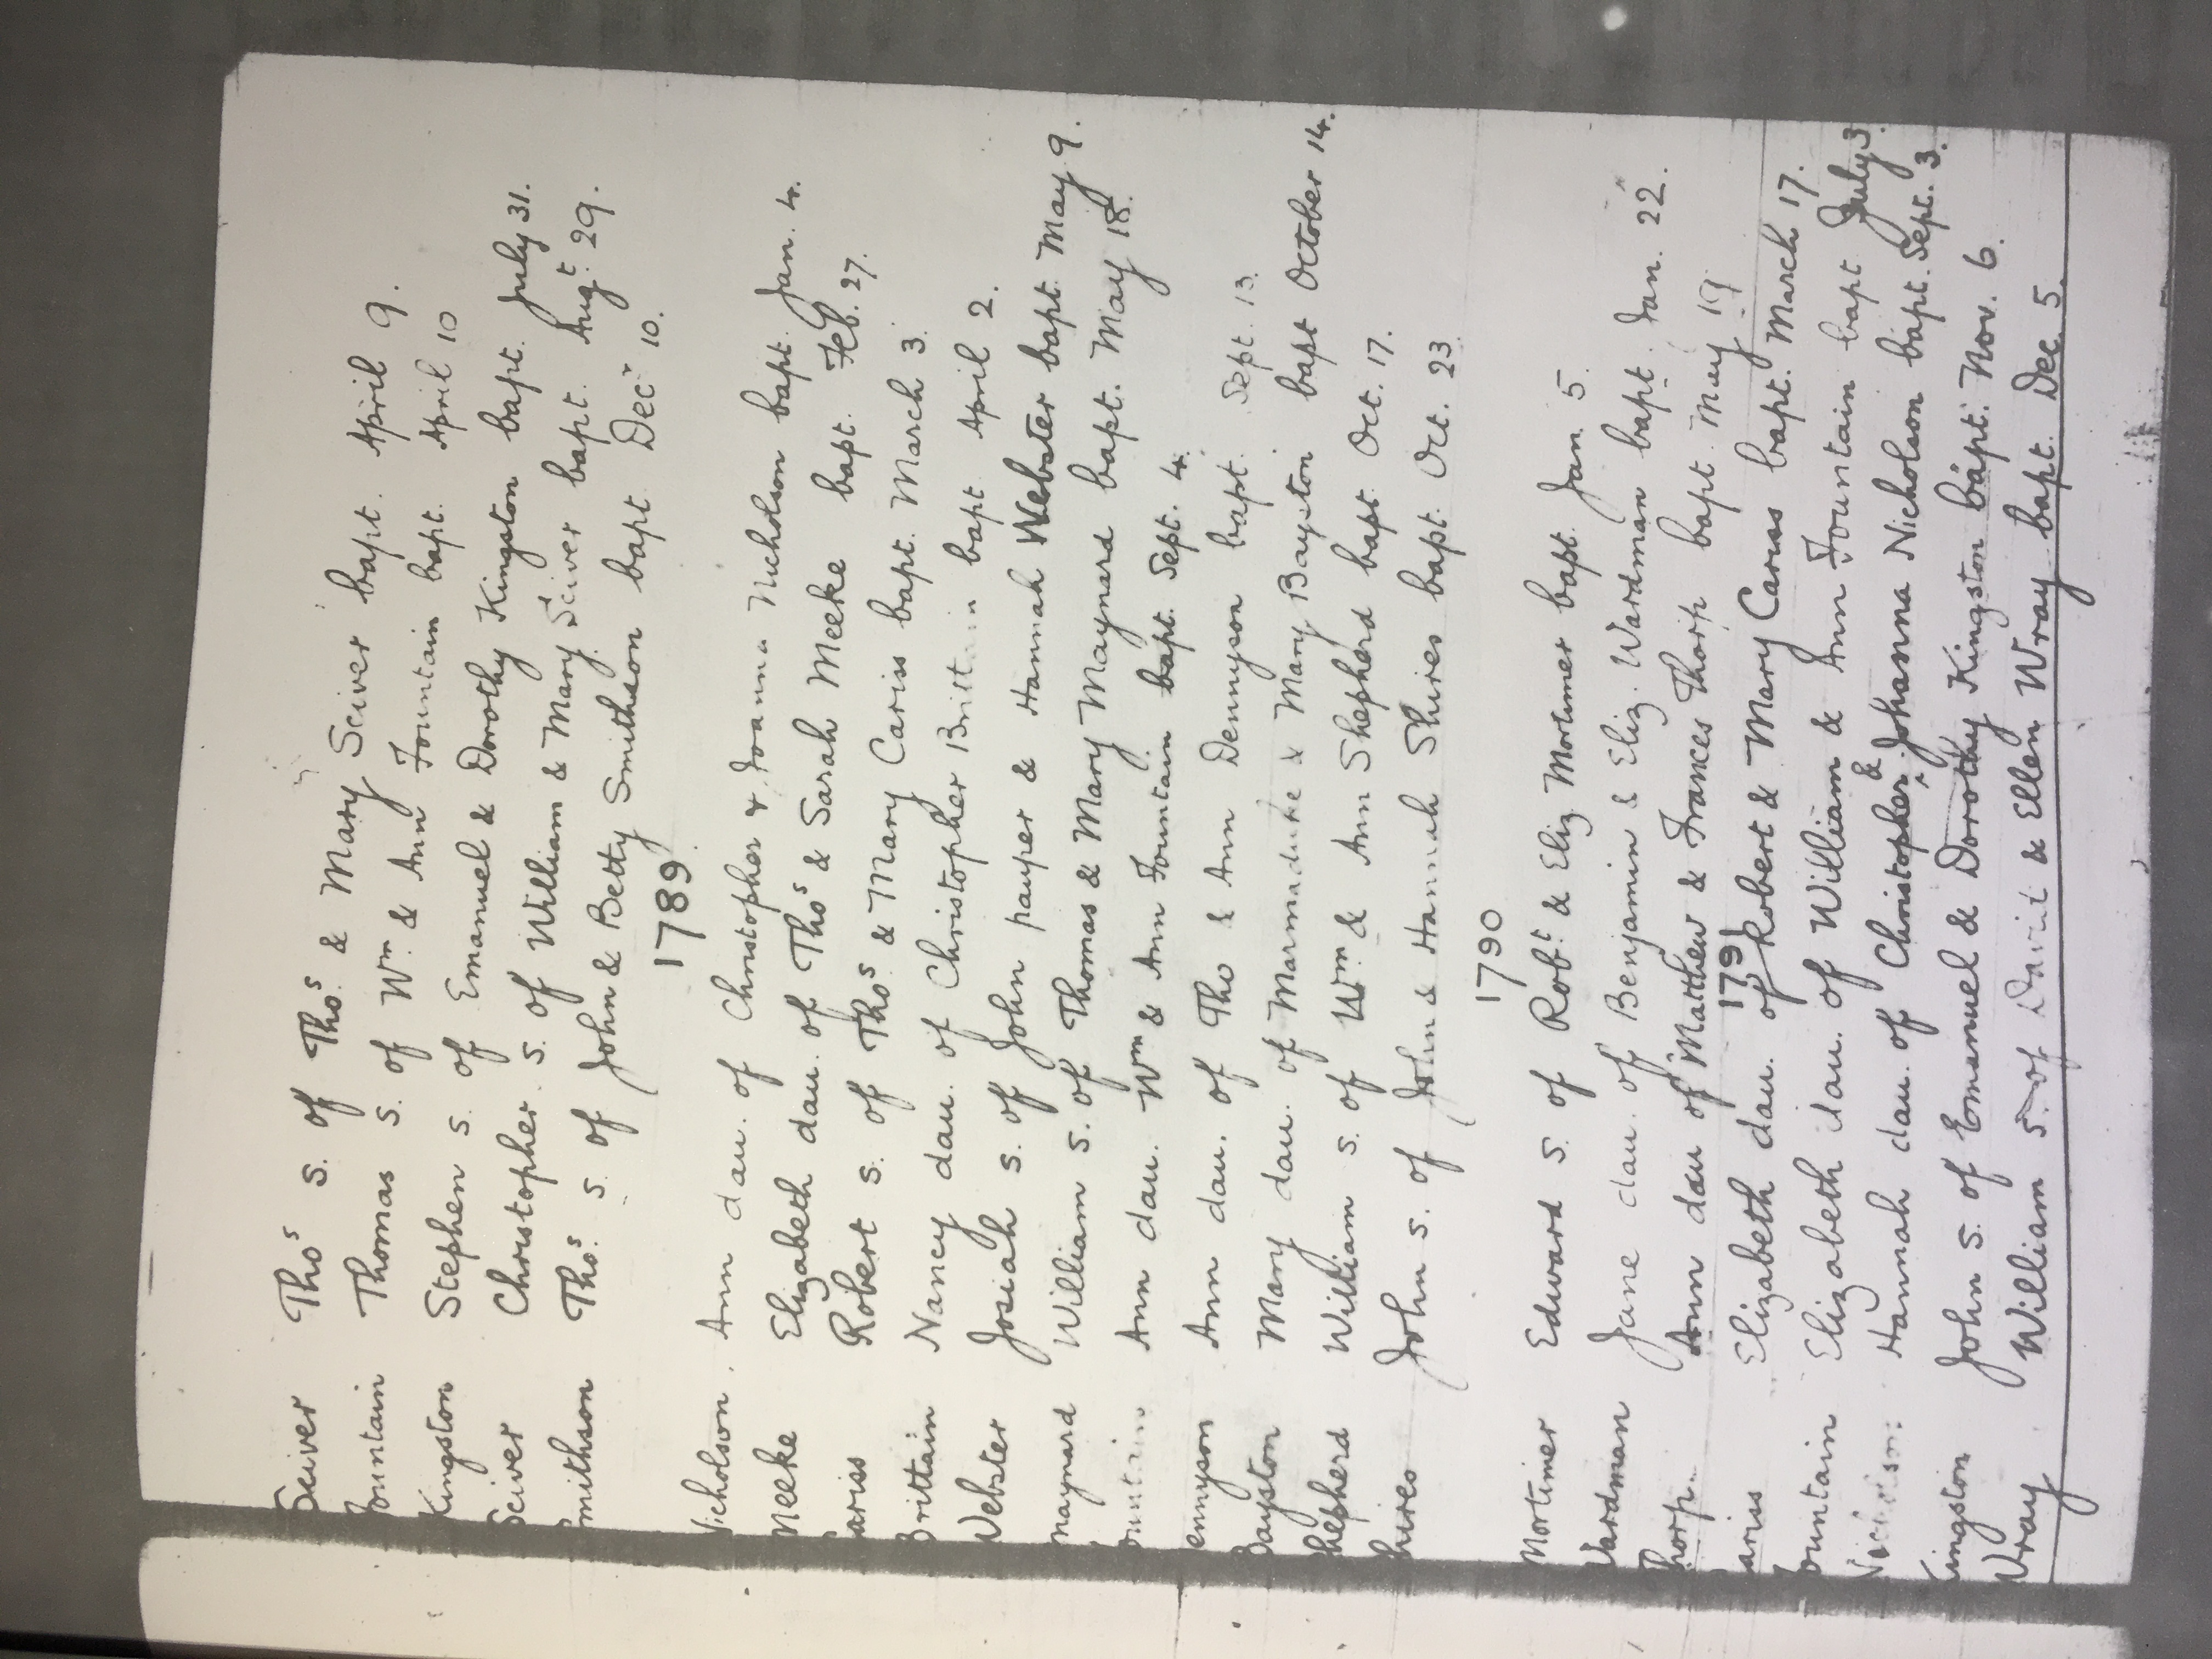 Sciver Thos. s. of Thos. & Mary Sciver bapt. April 9.
ountain Thomas s. of Wm. & Ann Fountain bapt. April 10
Kingston Stephen s. of Emanuel & Dorothy Kingston bapt. July 31.
Sciver Christopher s. of William & Mary Sciver bapt. Augt. 29.
mithson Thos. s. of John & Betty Smithson bapt Decr 10.
1789.
icholson Ann dau. of Christopher & Joanna Nicholson bapt. Jan. 4.
Meeke Elizabeth dau. of Thos & Sarah Meeke bapt. Feb. 27.
ariss Robert s. of Thos. & Mary Cariss bapt. March 3.
Brittain Nancy dau. of Christopher Brittain bapt. April 2.
Webster Josiah s. of John pauper & Hannah Webster bapt. May 9.
maynard William s. of Thomas & Mary Maynard bapt. May 18.
ountain Ann dau. Wm & Ann Fountain bapt. Sept. 4.
ennyson Ann dau. of Tho & Ann Dennyson bapt. Sept. 13.
Bayston Mary dau. of Marmaduke & Mary Bayston bapt October 14.
hepherd William s. of Wm & Ann Shepherd bapt. Oct. 17.
hires John s. of John & Hannah Shires bapt. Oct. 23
1790
Mortimer Edward s. of Robt. & Eliz Mortimer bapt. Jan. 5.
Wardman Jane dau. of Benjamin & Eliz. Wardman bapt. Jan. 22.
Thorp. Ann dau of Matthew & Frances Thorp bapt. May 19
1791
ariss Elizabeth dau. of Robert & Mary Cariss bapt. March 17.
ountain Elizabeth dau. of William & Ann Fountain bapt July 3.
Hannah dau. of Christopher & Johanna Nicholson bapt. Sept. 3.
Kingston John s. of Emanuel & Dorothy Kingston bapt. Nov. 6.
Wray William s. of David & Ellen Wray bapt. Dec. 5.